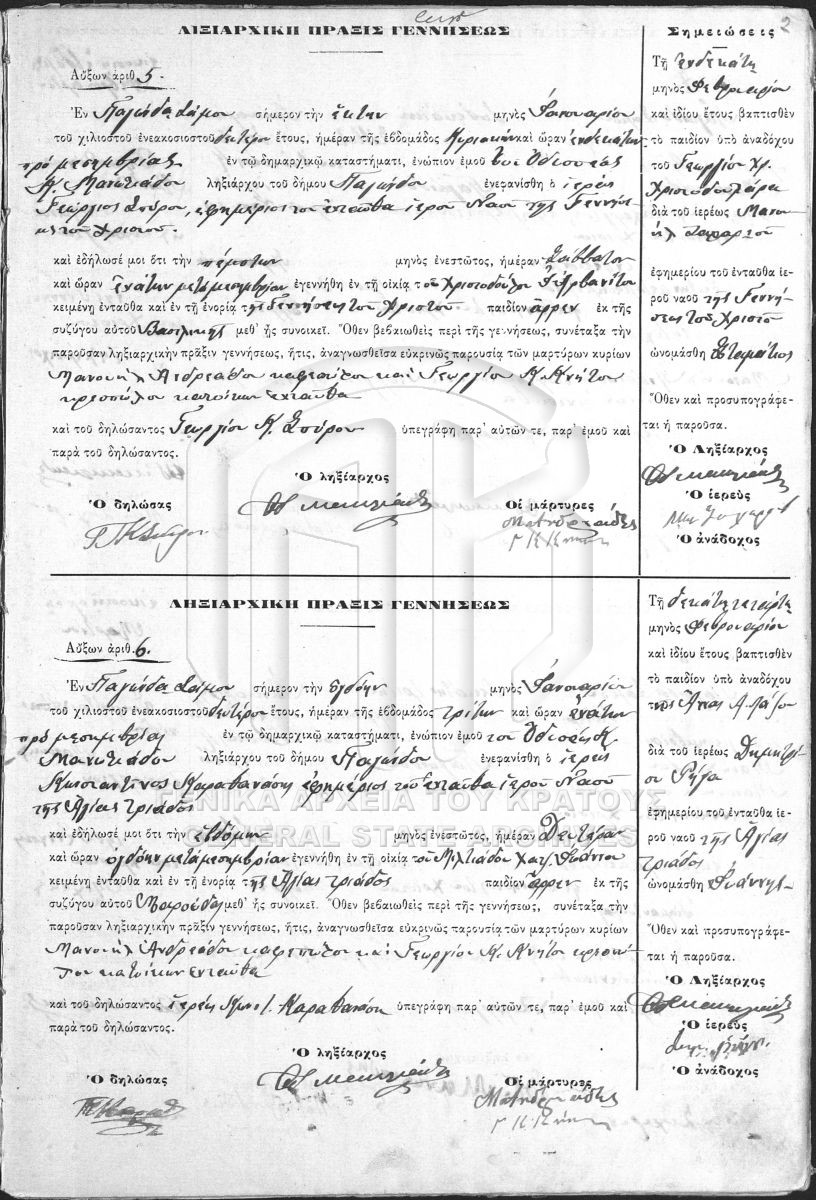 2
ΛΙΞΙΑΡΧΙΚΗ ΠΡΑΞΙΣ ΓΕΝΝΗΣΕΩΣ
Αὔξων ἀριθ. 5.
Ἐν Παγώνδα Σάμου σήμερον τὴν ἕκτην μηνὸς Ἰανουαρίου
τοῦ χιλιοστοῦ ἐνεακοσιοστοῦ δευτέρου ἔτους, ἡμέραν τῆς ἑβδομάδος Κυριακὴν καὶ ὥραν ἑνδεκάτην
πρὸ μεσημβρίας ἐν τῷ δημαρχικῷ καταστήματι, ἐνώπιον ἐμοῦ τοῦ Ὀδυσσέως
Κ. ληξιάρχου τοῦ δήμου Παγώνδου ἐνεφανίσθη ὁ ἱερεὺς
Γεώργιος Σπύρου, ἐφημέριος τοῦ ἐνταῦθα ἱεροῦ Ναοῦ τῆς Γεννή-
σεως τοῦ Χριστοῦ
καὶ ἐδήλωσέ μοι ὅτι τὴν πέμπτην μηνὸς ἐνεστῶτος, ἡμέραν Σάββατον
καὶ ὥραν ἐνάτην μετὰ μεσημβρίαν ἐγεννήθη ἐν τῇ οἰκίᾳ τοῦ Χριστοδούλου
κειμένῃ ἐνταῦθα καὶ ἐν τῇ ἐνορίᾳ τῆς Γεννήσεως τοῦ Χριστοῦ παιδίον ἄρρεν ἐκ τῆς
συζύγου αὐτοῦ Βασιλικῆς μεθ᾽ ἧς συνοικεῖ. Ὅθεν βεβαιωθεὶς περὶ τῆς γεννήσεως, συνέταξα τὴν
παροῦσαν ληξιαρχικὴν πρᾶξιν γεννήσεως, ἥτις, ἀναγνωσθεῖσα εὐκρινῶς παρουσίᾳ τῶν μαρτύρων κυρίων
Μανουὴλ Ἀνδρεάδου καφεπώλου καὶ Γεωργίου Κ.
κρεοπώλου κατοίκων ἐνταῦθα
καὶ τοῦ δηλώσαντος Γεωργίου Κ. Σπύρου ὑπεγράφη παρ᾽ αὐτῶν τε, παρ᾽ ἐμοῦ καὶ
παρὰ τοῦ δηλώσαντος.
Ὁ ληξίαρχος
Ὁ δηλώσας
Οἱ μάρτυρες
Σημειώσεις
Τῇ ἑνδεκάτῃ
μηνὸς Φεβρουαρίου
καὶ ἰδίου ἔτους βαπτισθὲν
τὸ παιδίον ὑπὸ ἀναδόχου
τοῦ Γεωργίου Χρ.
διὰ τοῦ ἱερέως Μανου
ἐφημερίου τοῦ ἐνταῦθα ἱε-
ροῦ ναοῦ τῆς Γεννή
σεως τοῦ Χριστοῦ
ὠνομάσθη Σταμάτιος
Ὅθεν καὶ προσυπογράφε-
ται ἡ παροῦσα.
Ὁ Ληξίαρχος
Ὁ ἱερεὺς
Ὁ ἀνάδοχος
ΛΗΞΙΑΡΧΙΚΗ ΠΡΑΞΙΣ ΓΕΝΝΗΣΕΩΣ
Αὔξων ἀριθ. 6.
Ἐν Παγώνδα Σάμου σήμερον τὴν ὀγδόην μηνὸς Ἰανουαρίου
τοῦ χιλιοστοῦ ἐνεακοσιοστοῦ δευτέρου ἔτους, ἡμέραν τῆς ἑβδομάδος τρίτην καὶ ὥραν ἐνάτην
πρὸ μεσημβρίας ἐν τῷ δημαρχικῷ καταστήματι, ἐνώπιον ἐμοῦ τοῦ Ὀδυσσέως Κ.
ληξιάρχου τοῦ δήμου Παγώνδου ἐνεφανίσθη ὁ ἱερεὺς
Κωνσταντῖνος Καραθανάσης ἐφημέριος τοῦ ἐνταῦθα ἱεροῦ Ναοῦ
τῆς Ἁγίας τριάδος
ΓΕΝΙΚΑ ΑΡΧΕΙΑ ΤΟΥ ΚΡΑΤΟΥΣ
GENERAL STATE ARCHIVES
καὶ ἐδήλωσέ μοι ὅτι τὴν ἑβδόμην μηνὸς ἐνεστῶτος, ἡμέραν Δευτέραν
καὶ ὥραν ὀγδόην μετὰ μεσημβρίαν ἐγεννήθη ἐν τῇ οἰκίᾳ τοῦ Μιλτιάδου Χατζῆ Ἰωάννου
κειμένῃ ἐνταῦθα καὶ ἐν τῇ ἐνορίᾳ τῆς Ἁγίας τριάδος παιδίον ἄρρεν ἐκ τῆς
συζύγου αὐτοῦ μεθ᾽ ἧς συνοικεῖ. Ὅθεν βεβαιωθεὶς περὶ τῆς γεννήσεως, συνέταξα τὴν
παροῦσαν ληξιαρχικὴν πρᾶξιν γεννήσεως, ἥτις, ἀναγνωσθεῖσα εὐκρινῶς παρουσίᾳ τῶν μαρτύρων κυρίων
Μανουὴλ Ἀνδρεάδου καφεπώλου καὶ Γεωργίου Κ. κρεοπώ-
λου κατοίκων ἐνταῦθα
καὶ τοῦ δηλώσαντος ἱερέως Κωνστ. Καραθανάση ὑπεγράφη παρ᾽ αὐτῶν τε, παρ᾽ ἐμοῦ καὶ
παρὰ τοῦ δηλώσαντος.
Ὁ ληξίαρχος
Ὁ δηλώσας
Οἱ μάρτυρες
Τῇ δεκάτῃ τετάρτῃ
μηνὸς Φεβρουαρίου
καὶ ἰδίου ἔτους βαπτισθὲν
τὸ παιδίον ὑπὸ ἀναδόχου
διὰ τοῦ ἱερέως Δημητρί
ου Ρήγα
ἐφημερίου τοῦ ἐνταῦθα ἱε-
ροῦ ναοῦ τῆς Ἁγίας
τριάδος
ὠνομάσθη Ἰωάννης
Ὅθεν καὶ προσυπογράφε-
ται ἡ παροῦσα.
Ὁ Ληξίαρχος
Ὁ ἱερεὺς
Ὁ ἀνάδοχος